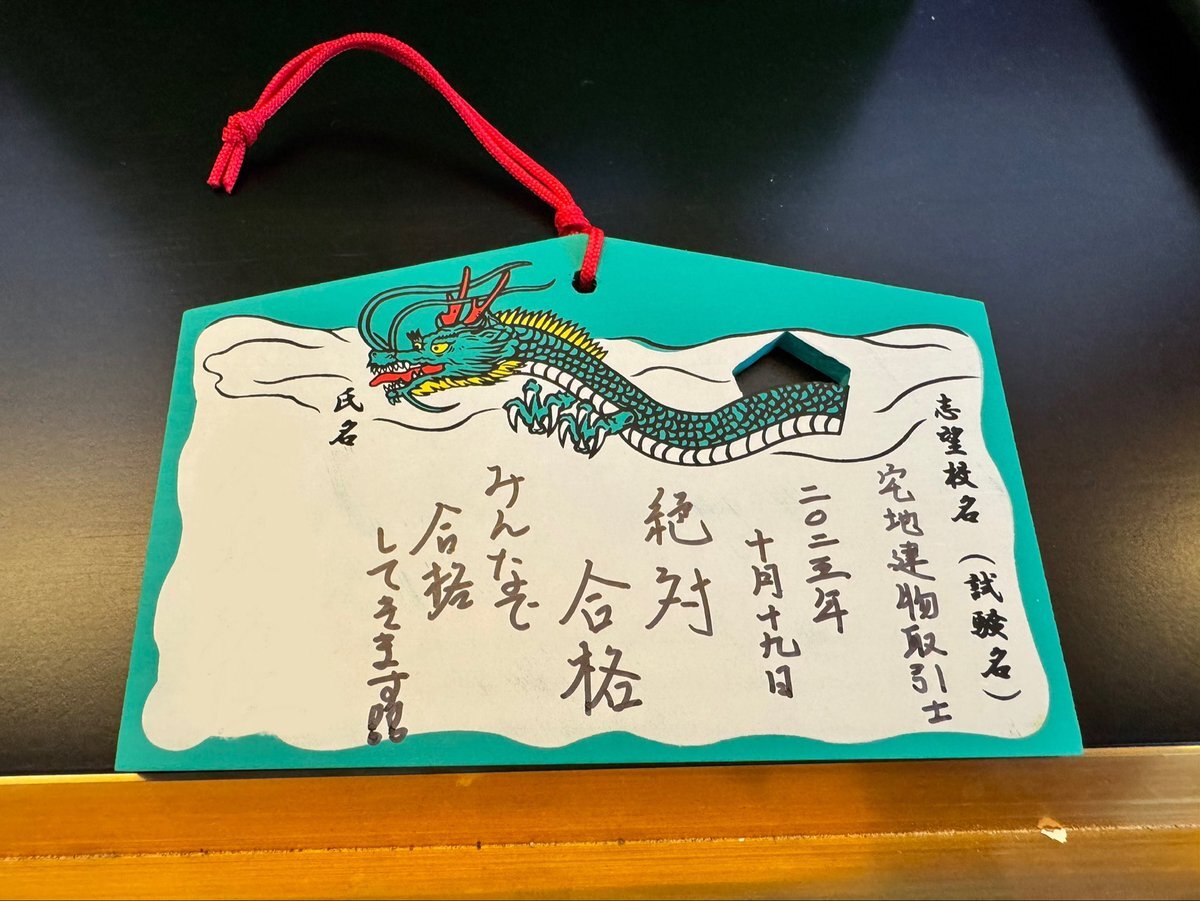 志望校名（試験名）
宅地建物取引士
二〇二五年
十月十九日
絶対
合格
みんなで
合格
してきます!!
氏名